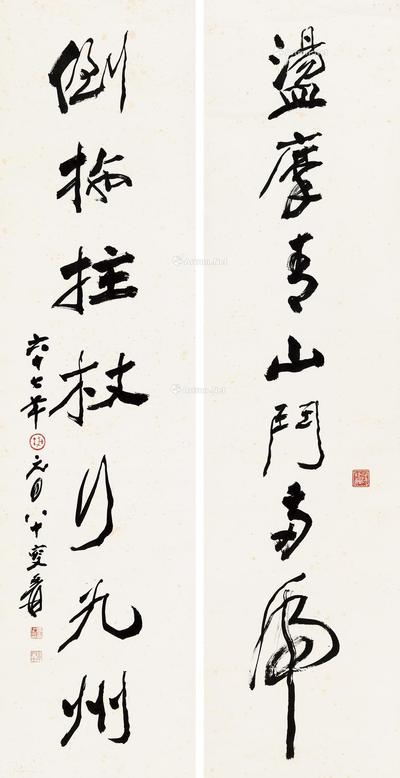 盪摩青山鬥兩虎
倒拖拄杖行九州
六十七年元月八十叟爰
Artron.Net
Artron.Net